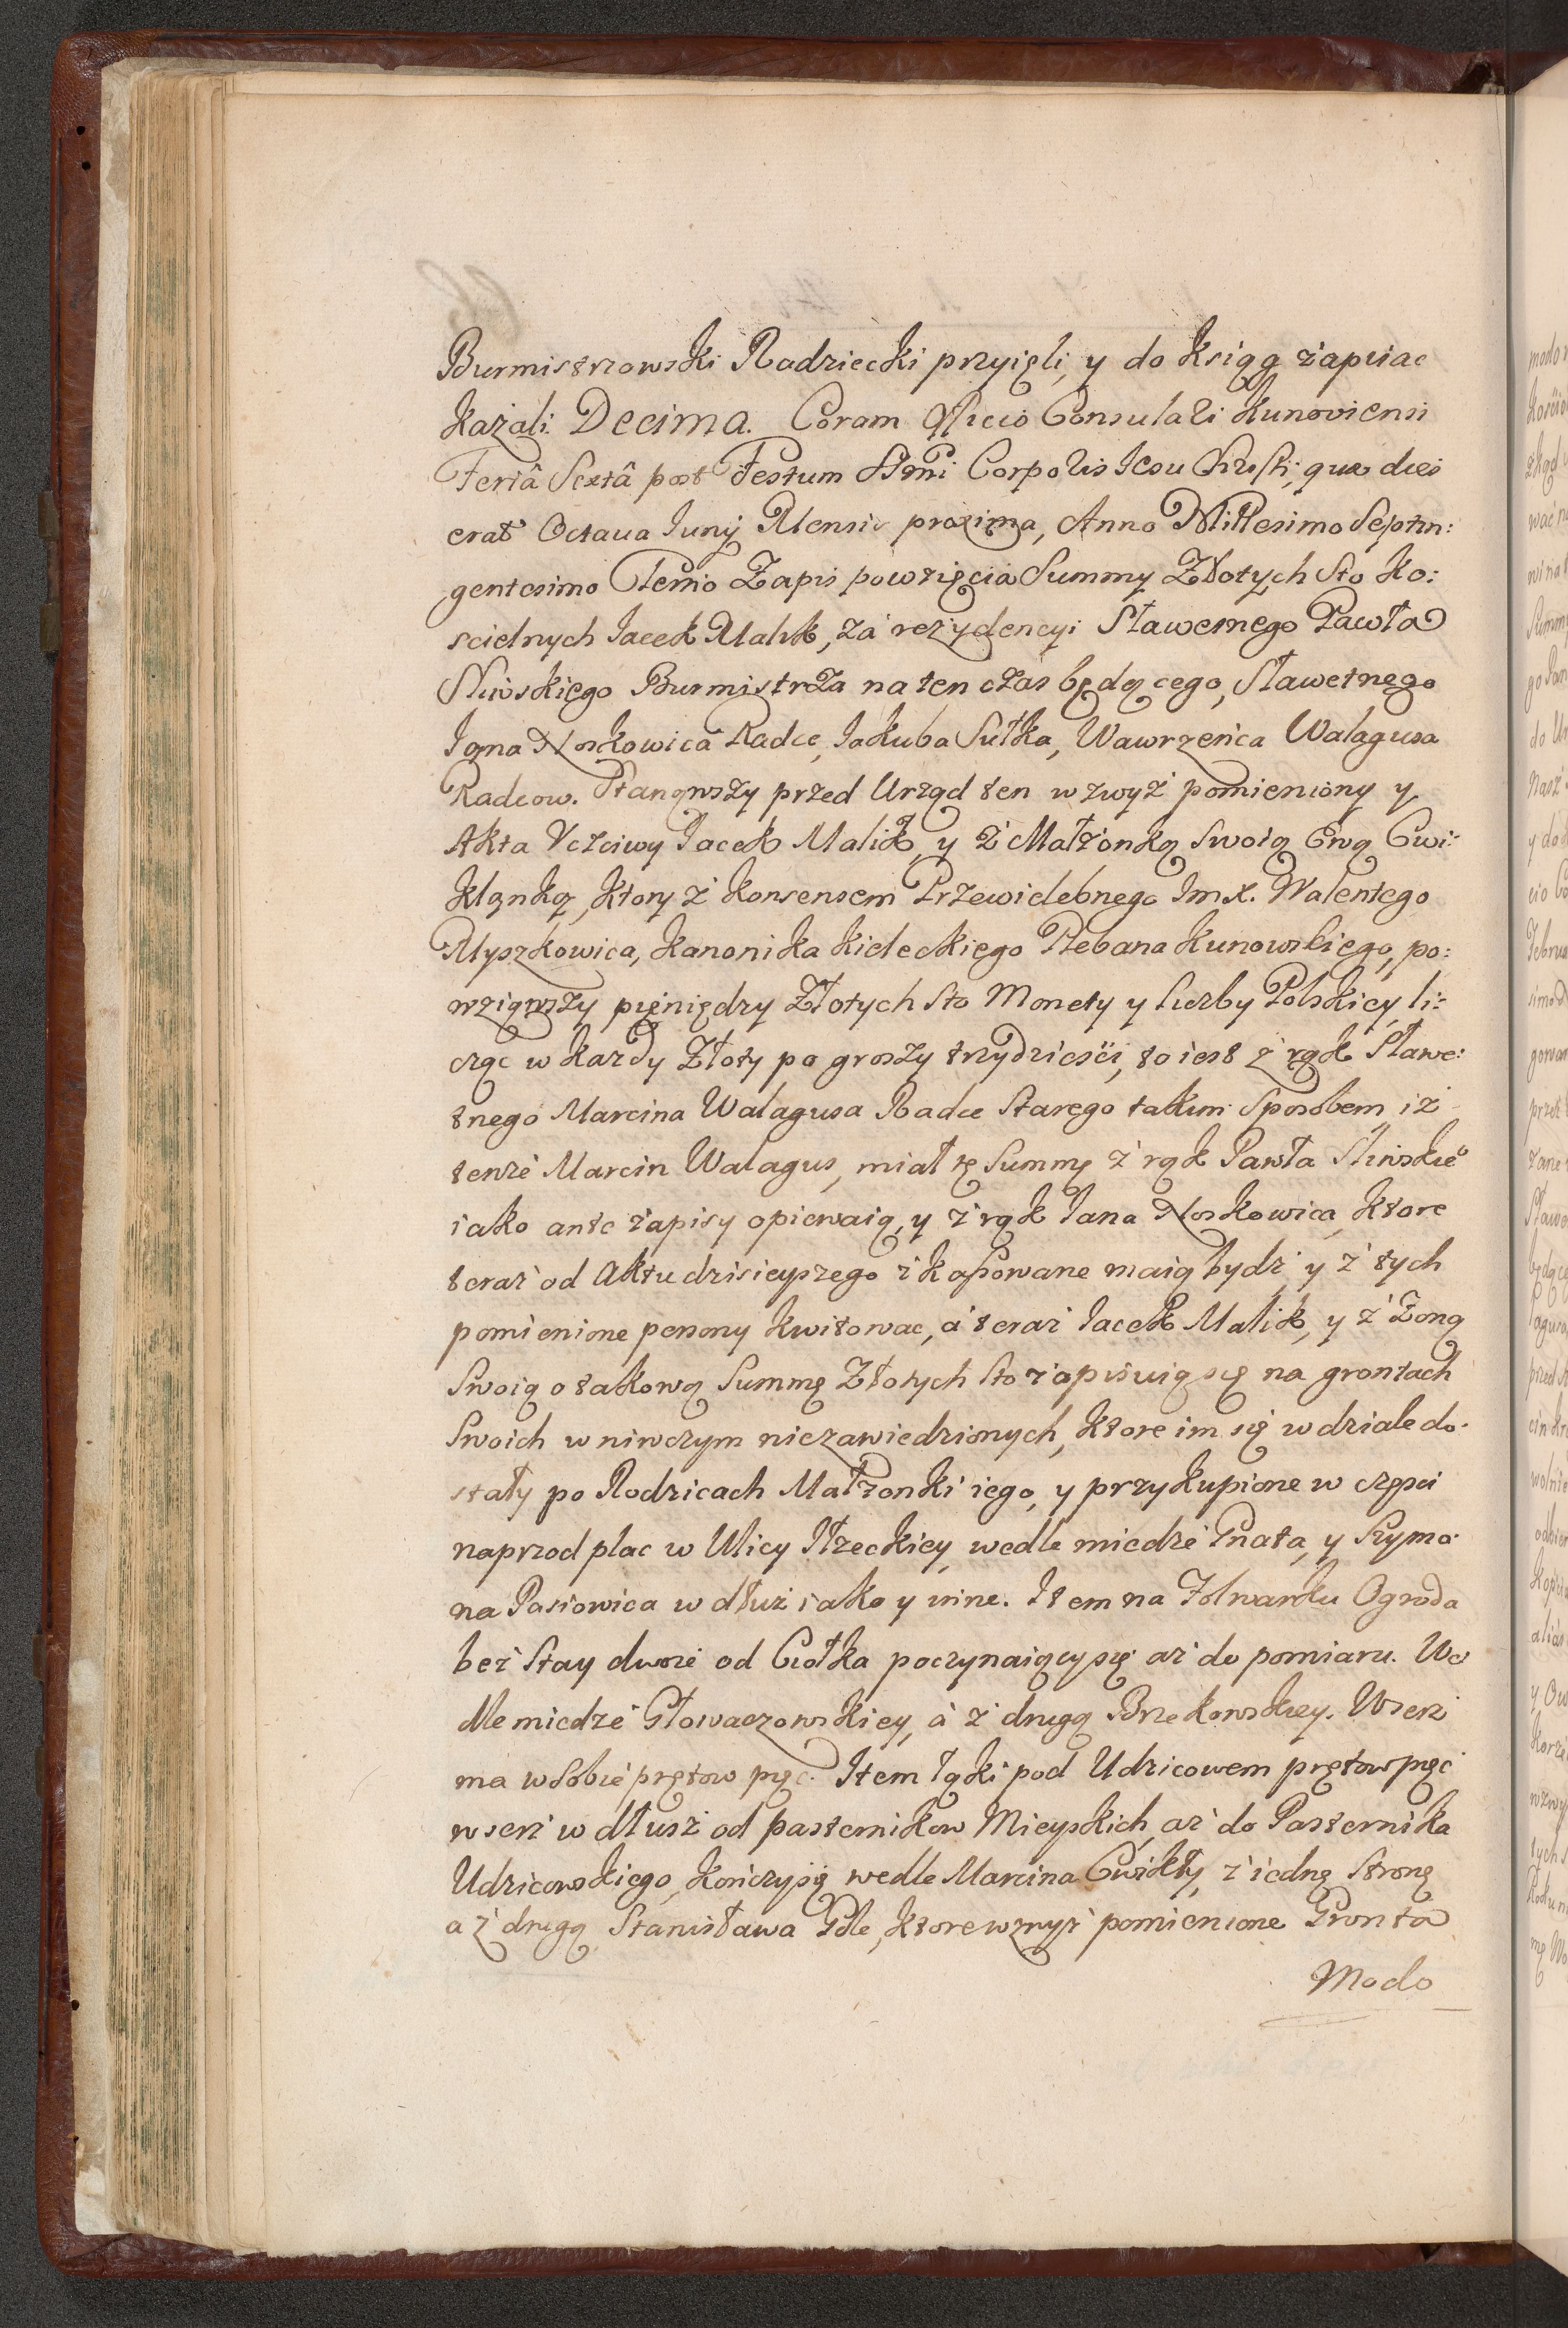 Burmistrzowski Radziecki przyięli, y do Ksiąg żapisac
każali. Decima. Coram Officio Consulari Kunoviensi
Feriâ Sextâ post Festum SSmi Corporis Iesu Christi, quæ dies
erat Octava Iunij Mensis proxima, Anno Millesimo Septin:
gentesimo Tertio Zapis powzięcia Summy Złotych Sto Ko:
scielnych Iacek Malik, zá rezydencyi Sławetnego Pawła
Sliwskiego Burmistrza na ten czas będącego, Sławetnego
Iana Noskowica Radce, Iakuba Sułka, Wawrzeńca Walagusa
Radcow. Stanąwszy przed Urząd ten wzwyż pomieniony y
Akta Uczciwy Iacek Malik, y ż Małżonką Swoią Ewą Cwi:
klanką, ktory ż Konsensem Przewielebnego Imx. Walentego
Myszkowica, Kanonika Kieleckiego Plebana Kunowskiego, po:
wziąwszy pięniędzy Złotych Sto Monety y liczby Polskiey, li:
cząc w kazdy Złoty po groszy trzydziesci, to iest ż rąk Sławe:
tnego Marcina Walagusa Radce Starego takim Sposobem, iż
tenże Marcin Walagus, miał tę Summę ż rąk Pawła Sliwskieo
iako ante żapisy opiewaią, y ż rąk Iana Noskowica, ktore
teraż od Aktu dzisieyszego żkassowane maią bydż y ż tych
pomienione persony kwitowac, á teraż Iacek Malik, y ż Zoną
Swoią o takową Summę Złotych Sto żapisuią się na grontach
Swoich w niwczym niezawiedzionych, ktore im się w dziale do:
stały po Rodzicach Małżonki iego, y przykupione w częsci
naprzod plac w Ulicy Iłzeckiey, wedle miedże Gnata, y Szymo:
na Pasiowica w dłuż iako y inne. Item na Folwarku Ogroda
beż Stay dwoie od Ciołka poczynaiący się aż do pomiaru. We
dle miedże Głowaczowskiey, á ż drugą Brzekowskiey. Wszerz
ma w sobie prętow pęc. Item łąki pod Udzicowem prętow pęc
wserz w dłusz od pasternikow Mieyskich, aż do Pasternika
Udzicowskiego, konczy się wedle Marcina Cwikły, ż iedną Stronę
a ż drugą Stanisława Gdle, ktore wzwyż pomienione Gronta
Modo